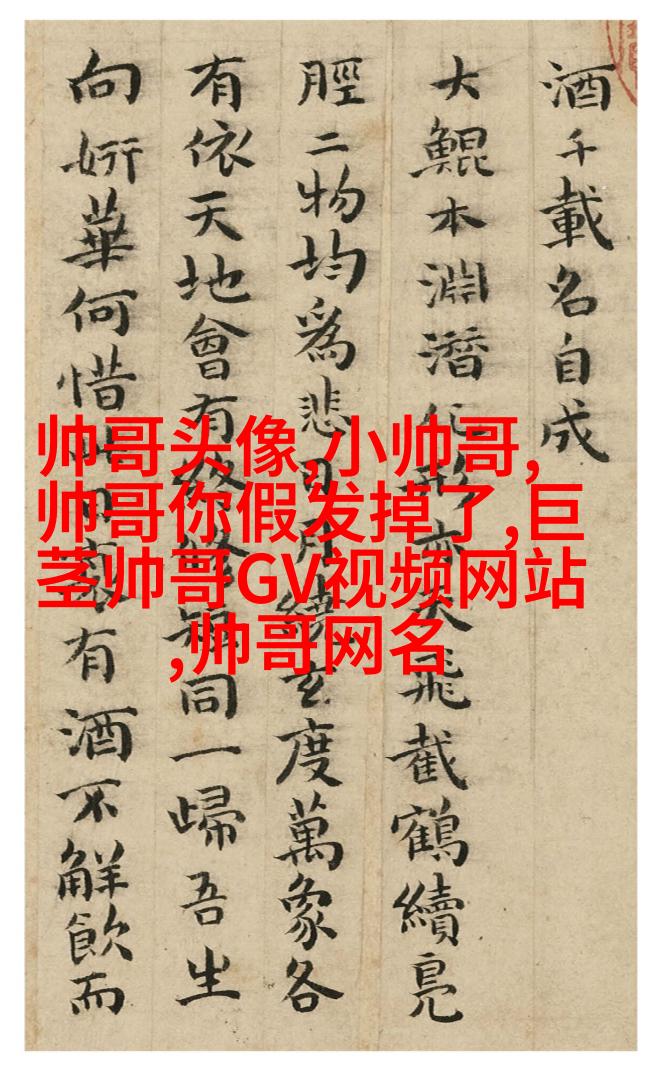 帅哥头像,小帅哥,
帅哥你假发掉了,巨
茎帅哥GV视频网站
,帅哥网名
酒千載名自成
大鯤本淵潛化飛截鶴續鳧
脛二物均為悲月繞玄度萬象各
有依天地會有同一歸吾生
向妍華何惜有酒不觧飲而